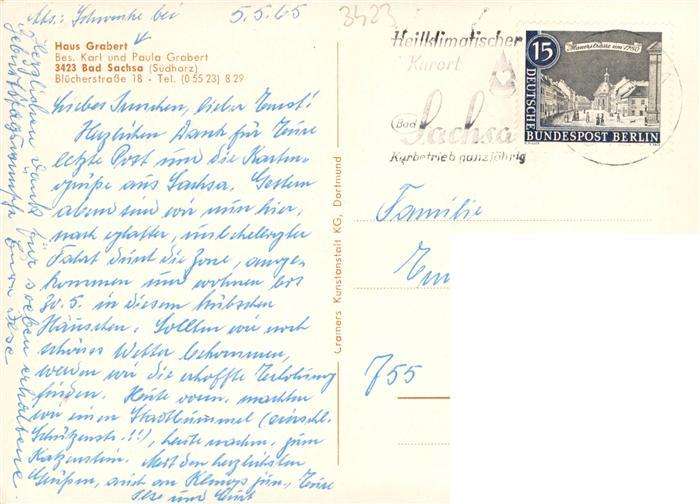 Abs.: Schwenke bei 5.5.65
Haus Grabert
Bes. Karl und Paula Grabert
3423 Bad Sachsa (Südharz)
Blücherstraße 18 - Tel. (0 55 23) 8 29
Liebes Ännchen, lieber Ernst!
Herzlichen Dank für Eure
letzte Post und die Karten-
grüße aus Sachsa. Gestern
abend sind wir nun hier,
nach glatter, unbehelligter
Fahrt durch die Zone, ange-
kommen und wohnen bis
20.5. in diesem hübschen
Häuschen. Sollten wir noch
schönes Wetter bekommen,
werden wir die erhoffte Erholung
finden. Heute vorm. machten
wir einen Stadtbummel (einschl.
Schützenstr.!!), heute nachm. zum
Katzenstein. Mit den herzlichsten
Grüßen, auch an Klemps jun., Eure
Ilse und Ernst
Herzlichen Dank für soeben erhaltene
Geburtstagswünsche Eure Ilse
Cramers Kunstanstalt KG, Dortmund
3423
Heilklimatischer
Kurort
Bad
Sachsa
Kurbetrieb ganzjährig
15
Mauerstrasse um 1780
DEUTSCHE
BUNDESPOST BERLIN
Familie
755